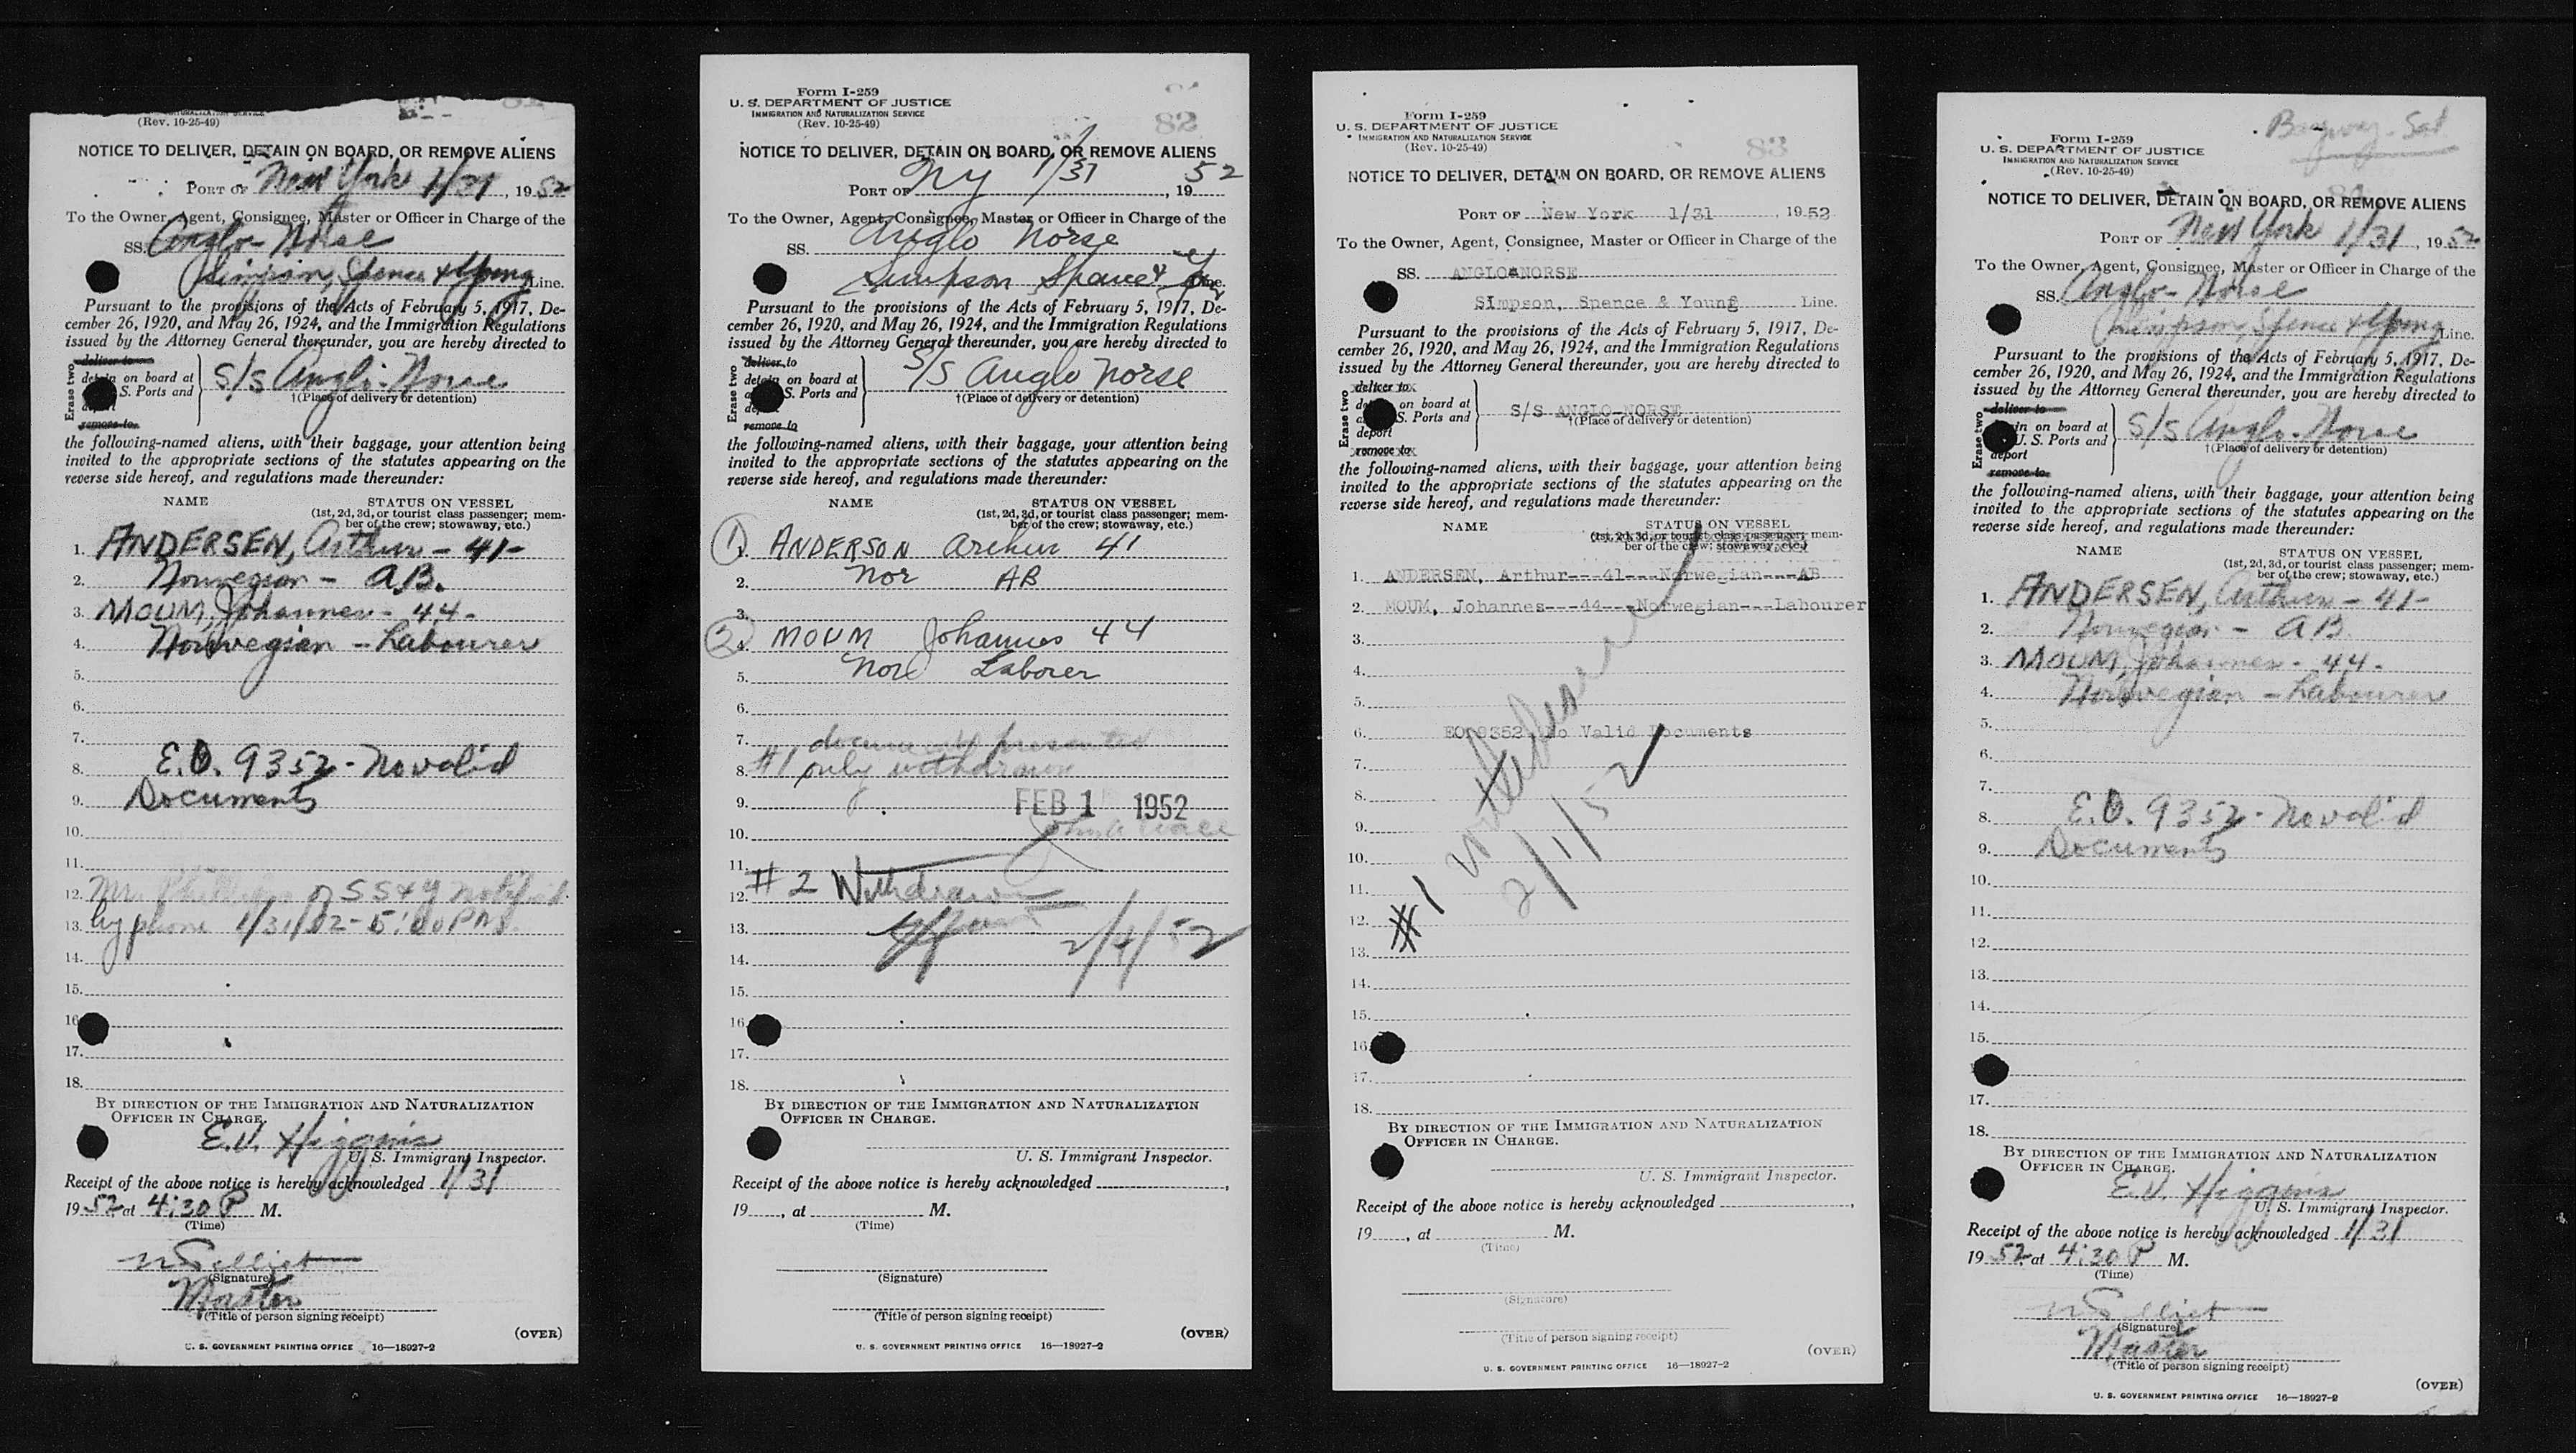 (Rev. 10-25-49)
NOTICE TO DELIVER, DETAIN ON BOARD, OR REMOVE ALIENS
PORT OF New York 1/31, 1952
To the Owner, Agent, Consignee, Master or Officer in Charge of the
SS. Anglo-Norse
Simpson, Spence & Young Line.
Pursuant to the provisions of the Acts of February 5, 1917, De-
cember 26, 1920, and May 26, 1924, and the Immigration Regulations
issued by the Attorney General thereunder, you are hereby directed to
Erase two
deliver to
on board at
S. Ports and
remove to
S/S Anglo-Norse
†(Place of delivery or detention)
the following-named aliens, with their baggage, your attention being
invited to the appropriate sections of the statutes appearing on the
reverse side hereof, and regulations made thereunder:
NAME STATUS ON VESSEL
(1st, 2d, 3d, or tourist class passenger; mem-
ber of the crew; stowaway, etc.)
1. ANDERSEN, Arthur - 41-
2. Norwegian - AB.
3. MOUM, Johannes - 44-
4. Norwegian - Labourer
5.
6.
7.
8. E.O. 9352 - No valid
9. Documents
10.
11.
12. Mr. of SS&Y notified
13. by phone 1/31/52 - 5:00 PM.
14.
15.
16
17.
18.
BY DIRECTION OF THE IMMIGRATION AND NATURALIZATION
OFFICER IN CHARGE.
E.V. Higgins
U. S. Immigrant Inspector.
Receipt of the above notice is hereby acknowledged 1/31
1952 at 4:30 P M.
(Time)
(Signature)
Master
(Title of person signing receipt)
(OVER)
U. S. GOVERNMENT PRINTING OFFICE 16—18927-2
Form I-259
U. S. DEPARTMENT OF JUSTICE
IMMIGRATION AND NATURALIZATION SERVICE
(Rev. 10-25-49)
82
NOTICE TO DELIVER, DETAIN ON BOARD, OR REMOVE ALIENS
PORT OF NY 1/31, 1952
To the Owner, Agent, Consignee, Master or Officer in Charge of the
SS. Anglo Norse
Simpson Spence & Line.
Pursuant to the provisions of the Acts of February 5, 1917, De-
cember 26, 1920, and May 26, 1924, and the Immigration Regulations
issued by the Attorney General thereunder, you are hereby directed to
Erase two
deliver to
on board at
S. Ports and
remove to
S/S Anglo Norse
†(Place of delivery or detention)
the following-named aliens, with their baggage, your attention being
invited to the appropriate sections of the statutes appearing on the
reverse side hereof, and regulations made thereunder:
NAME STATUS ON VESSEL
(1st, 2d, 3d, or tourist class passenger; mem-
ber of the crew; stowaway, etc.)
1. ANDERSON Arthur 41
2. Nor AB
3.
2 4. MOUM Johannes 44
5. Nor Laborer
6.
7. documents presented
8. #1 only withdrawn
9. FEB 1 1952
10.
11.
12. #2 Withdrawn
13. 2/4/52
14.
15.
16.
17.
18.
BY DIRECTION OF THE IMMIGRATION AND NATURALIZATION
OFFICER IN CHARGE.
U. S. Immigrant Inspector.
Receipt of the above notice is hereby acknowledged
19 , at M.
(Time)
(Signature)
(Title of person signing receipt)
(OVER)
U. S. GOVERNMENT PRINTING OFFICE 16—18927-2
Form I-259
U. S. DEPARTMENT OF JUSTICE
IMMIGRATION AND NATURALIZATION SERVICE
(Rev. 10-25-49)
83
NOTICE TO DELIVER, DETAIN ON BOARD, OR REMOVE ALIENS
PORT OF New York 1/31, 1952
To the Owner, Agent, Consignee, Master or Officer in Charge of the
SS. ANGLO-NORSE
SImpson, Spence & Young Line.
Pursuant to the provisions of the Acts of February 5, 1917, De-
cember 26, 1920, and May 26, 1924, and the Immigration Regulations
issued by the Attorney General thereunder, you are hereby directed to
Erase two
deliver to
on board at
S. Ports and
deport
remove to
S/S ANGLO-NORSE
†(Place of delivery or detention)
the following-named aliens, with their baggage, your attention being
invited to the appropriate sections of the statutes appearing on the
reverse side hereof, and regulations made thereunder:
NAME STATUS ON VESSEL
(1st, 2d, 3d, or tourist class passenger; mem-
ber of the crew; stowaway, etc.)
1. ANDERSEN, Arthur---41---Norwegian---AB
2. MOUM, Johannes---44---Norwegian---Labourer
3.
4.
5.
6. EO 9352 No Valid Documents
7.
8.
9.
10.
11.
12.
#1 withdrawn 2/1/52
13.
14.
15.
16
17.
18.
BY DIRECTION OF THE IMMIGRATION AND NATURALIZATION
OFFICER IN CHARGE.
U. S. Immigrant Inspector.
Receipt of the above notice is hereby acknowledged
19 , at M.
(Time)
(Signature)
(Title of person signing receipt)
(OVER)
U. S. GOVERNMENT PRINTING OFFICE 16—18927-2
Form I-259
U. S. DEPARTMENT OF JUSTICE
IMMIGRATION AND NATURALIZATION SERVICE
(Rev. 10-25-49)
NOTICE TO DELIVER, DETAIN ON BOARD, OR REMOVE ALIENS
PORT OF New York 1/31, 1952
To the Owner, Agent, Consignee, Master or Officer in Charge of the
SS. Anglo-Norse
Simpson, Spence & Young Line.
Pursuant to the provisions of the Acts of February 5, 1917, De-
cember 26, 1920, and May 26, 1924, and the Immigration Regulations
issued by the Attorney General thereunder, you are hereby directed to
Erase two
deliver to
in on board at
U. S. Ports and
deport
remove to
S/S Anglo-Norse
†(Place of delivery or detention)
the following-named aliens, with their baggage, your attention being
invited to the appropriate sections of the statutes appearing on the
reverse side hereof, and regulations made thereunder:
NAME STATUS ON VESSEL
(1st, 2d, 3d, or tourist class passenger; mem-
ber of the crew; stowaway, etc.)
1. ANDERSEN, Arthur - 41-
2. Norwegian - AB
3. MOUM, Johannes - 44-
4. Norwegian - Labourer
5.
6.
7.
8. E.O. 9352 - No valid
9. Documents
10.
11.
12.
13.
14.
15.
17.
18.
BY DIRECTION OF THE IMMIGRATION AND NATURALIZATION
OFFICER IN CHARGE.
E.V. Higgins
U. S. Immigrant Inspector.
Receipt of the above notice is hereby acknowledged 1/31
1952 at 4:30 P M.
(Time)
(Signature)
Master
(Title of person signing receipt)
(OVER)
U. S. GOVERNMENT PRINTING OFFICE 16—18927-2